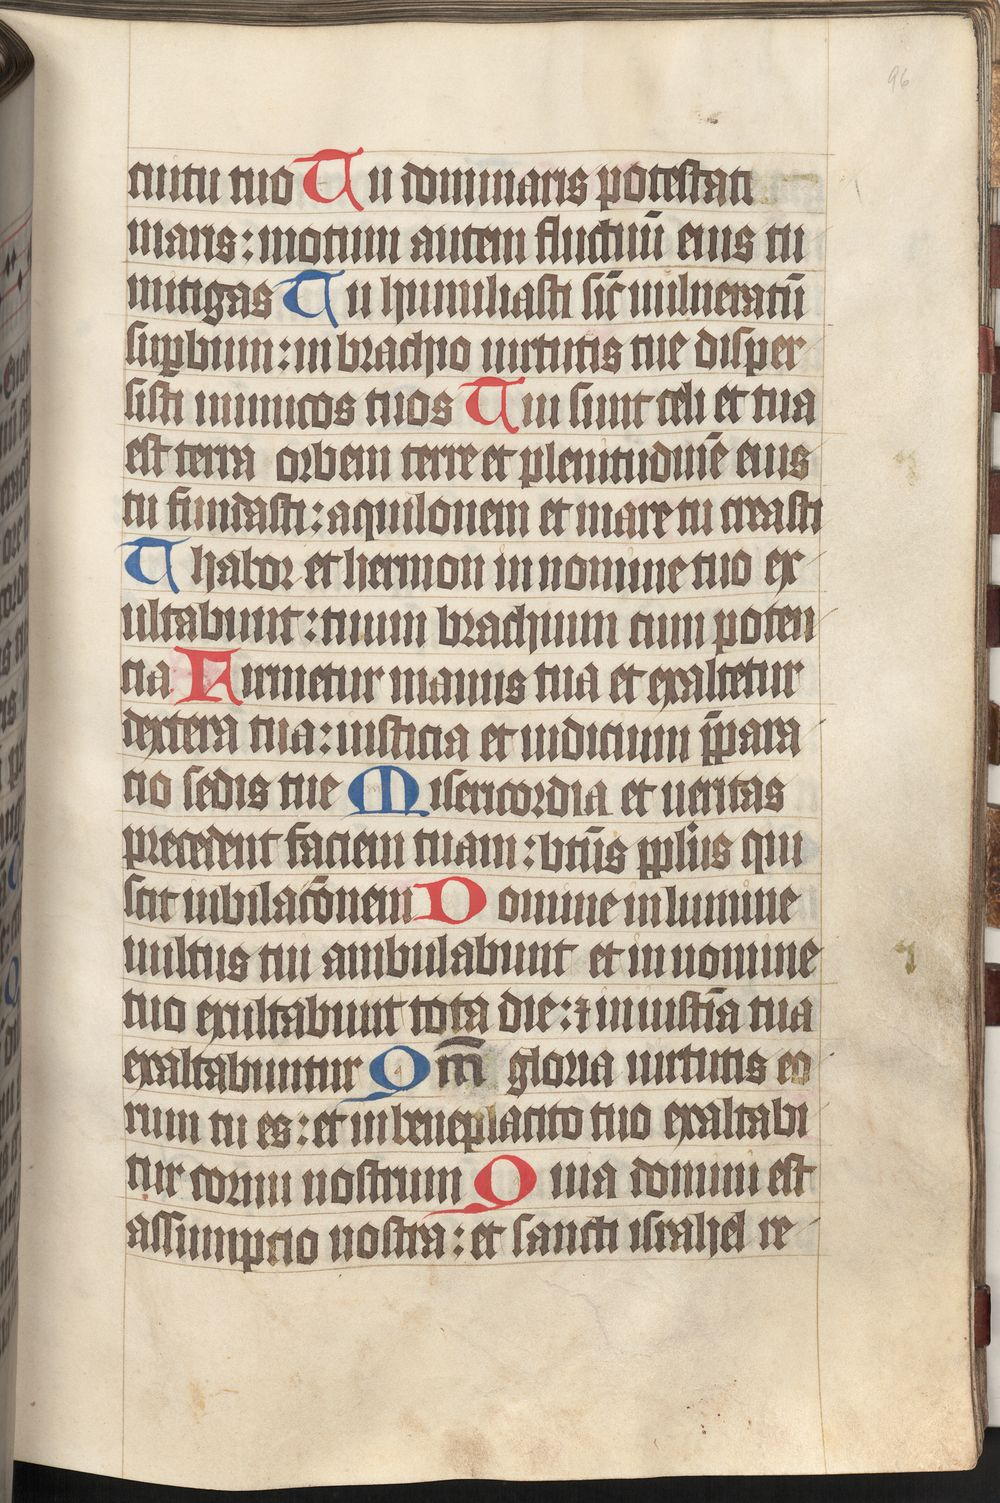 96
cuitu tuo Tu dominaris potestati
maris: motum autem fluctuū eius tu
mitigas Tu humiliasti sic̄ uulneratū
sup̄bum: in brachio uirtutis tue disper
sisti inimicos tuos Tui sunt celi et tua
est terra orbem terre et plenitudinē eius
tu fundasti: aquilonem et mare tu creasti
Thabor et hermon in nomine tuo ex
ultabunt: tuum brachium cum poten
cia Firmetur manus tua et exaltetur
dextera tua: iusticia et iudicium p̄para
cio sedis tue Misericordia et ueritas
precedent faciem tuam: btūs pp̄lus qui
scit iubilacōnem Domine in lumine
uultus tui ambulabunt et in nomine
tuo exultabunt tota die: ⁊ in iustīa tua
exaltabuntur Qm̄ gloria uirtutis eo
rum tu es: et in beneplacito tuo exaltabi
tur cornu nostrum Quia domini est
assumpcio nostra: et sancti israhel re